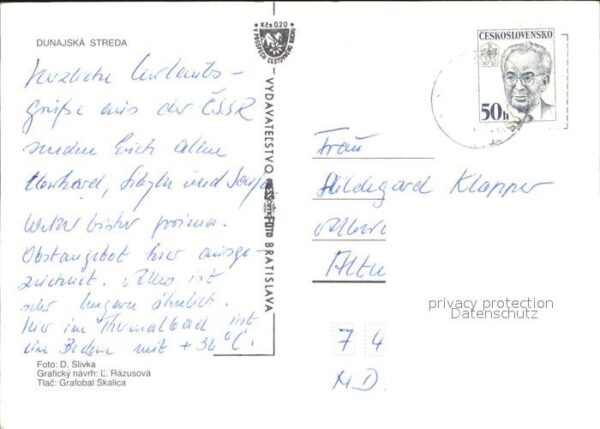 DUNAJSKÁ STREDA
Kčs 0.20
V PROSPECH CESTOVNÉHO RUCHU
ČESKOSLOVENSKO
50h
Herzliche Urlaubs-
grüße aus der ČSSR
senden Euch allen
Eberhard, Sibylle und Sonja.
Wetter bisher prima.
Obstangebot hier ausge-
zeichnet. Alles ist
sehr Ungarn ähnlich.
Hier im Thermalbad ist
ein Becken mit +36°C.
Foto: D. Slivka
Grafický návrh: Ľ. Rázusová
Tlač: Grafobal Skalica
VYDAVATEĽSTVO
BRATISLAVA
Frau
Hildegard Klapper
privacy protection
Datenschutz
7 4